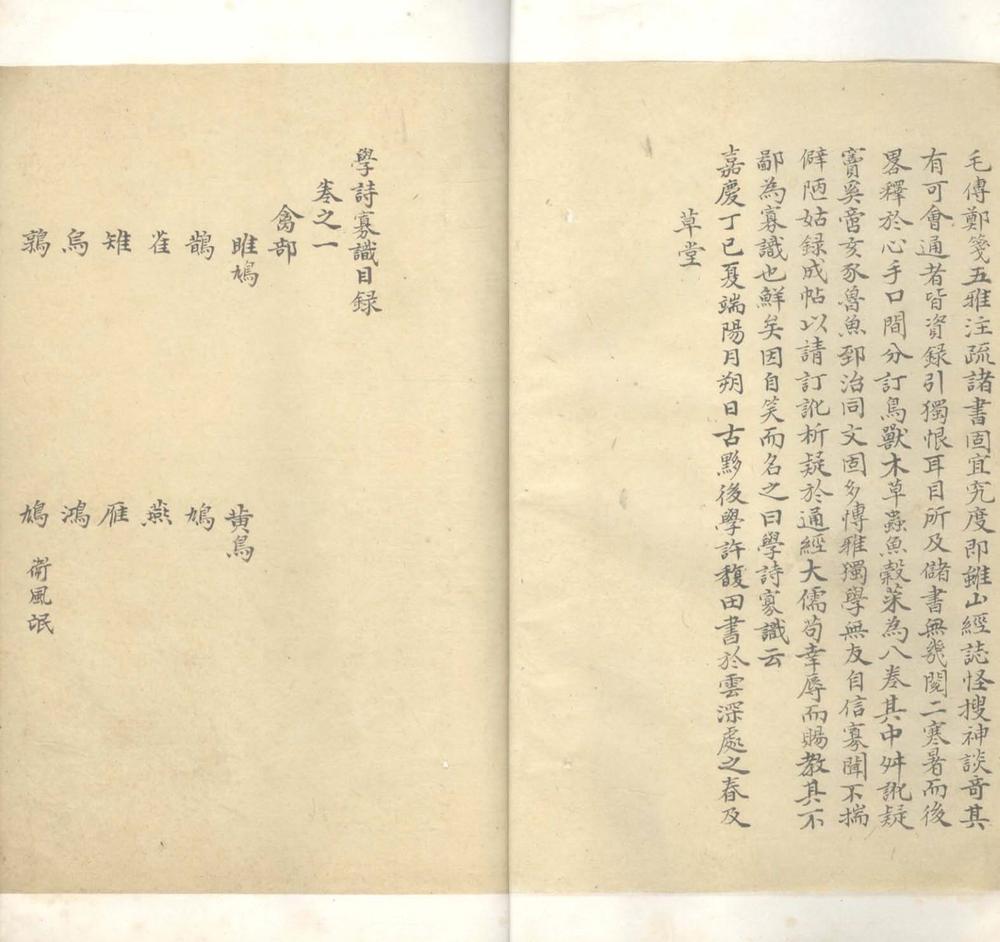 毛傳鄭箋五雅注疏諸書固宜究度即雖山經誌怪搜神談奇其
有可會通者皆資録引獨恨耳目所及儲書無幾閱二寒暑而後
畧釋於心手口間分訂鳥獸木草蟲魚穀菜為八卷其中舛訛疑
竇奚啻亥豕魯魚郅治同文固多博雅獨學無友自信寡聞不揣
僻陋姑録成帖以請訂訛析疑於通經大儒苟幸辱而賜教其不
鄙為寡識也鮮矣因自笑而名之曰學詩寡識云
嘉慶丁巳夏端陽月朔日古黟後學許馥田書於雲深處之春及
草堂
學詩寡識目録
卷之一
禽部
雎鳩 黄鳥
鵲 鳩
雀 燕
雉 雁
烏 鴻
鶉 鳩 衛風氓